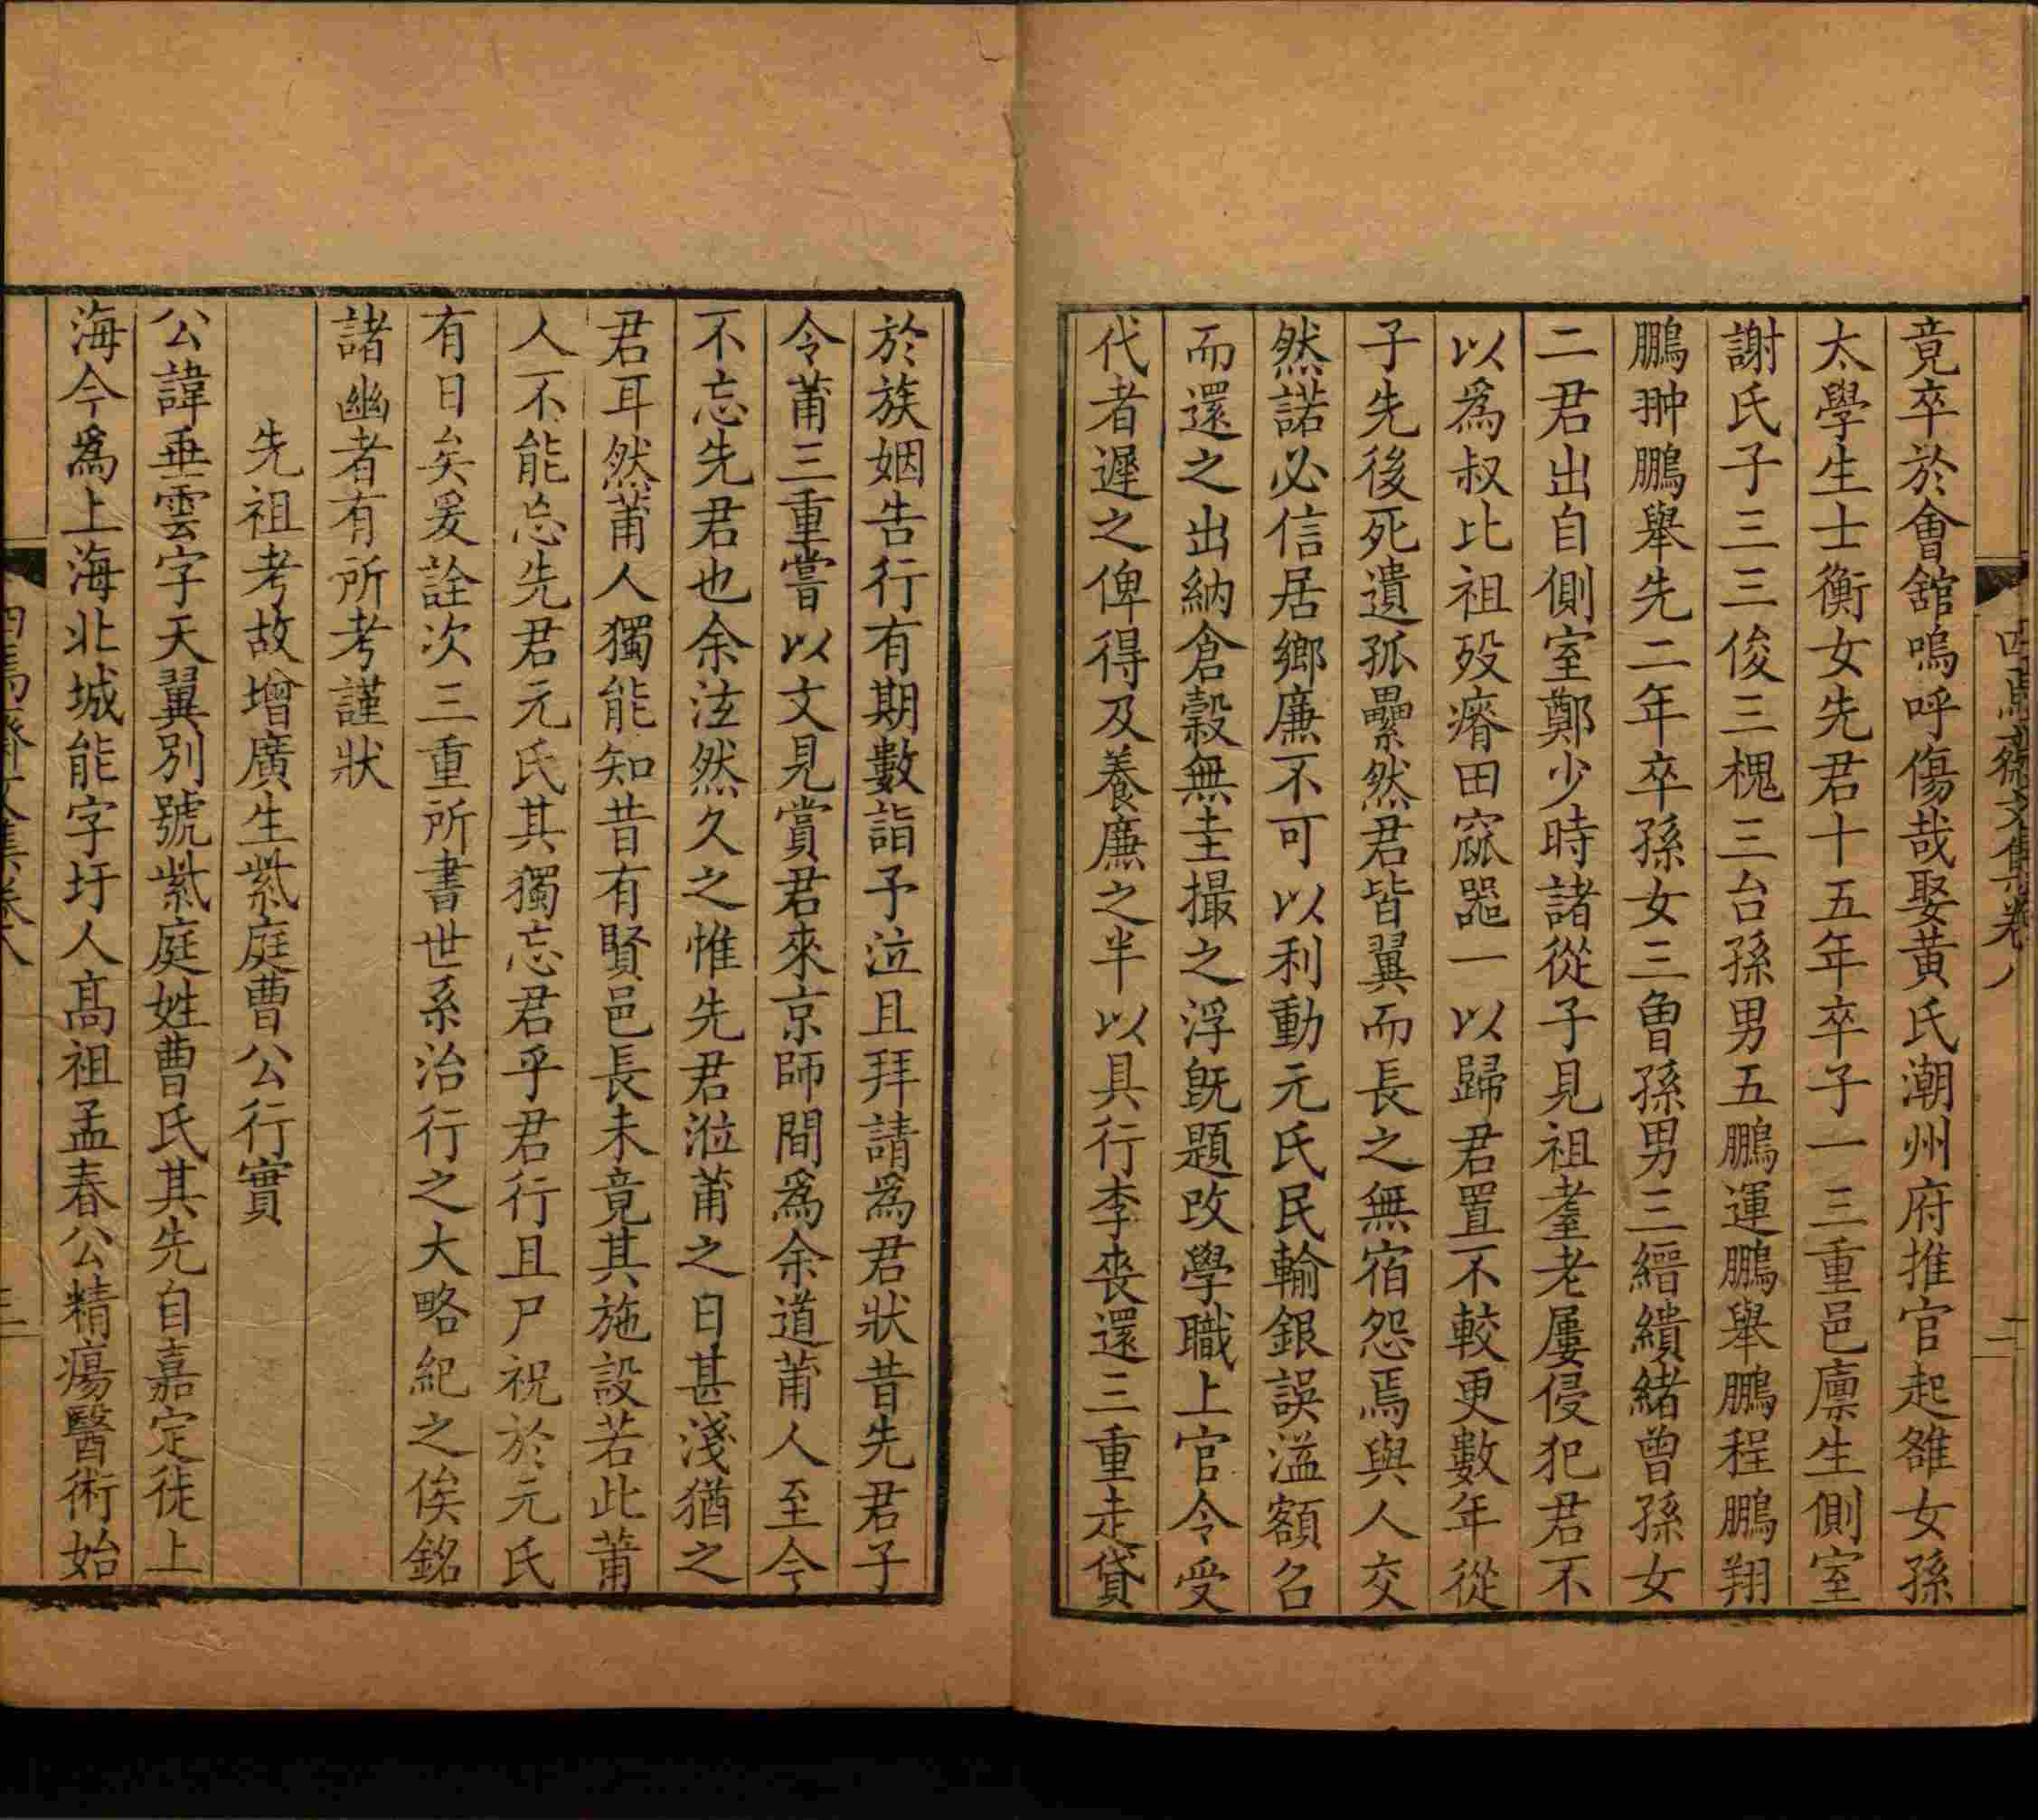 四焉齋文集卷八
二
竟卒於會舘嗚呼傷哉娶黃氏潮州府推官起雒女孫
太學生士衡女先君十五年卒子一三重邑廪生側室
謝氏子三三俊三槐三台孫男五鵬運鵬舉鵬程鵬翔
鵬翀鵬舉先二年卒孫女三曾孫男三縉繢緒曾孫女
二君出自側室鄭少時諸從子見祖耋老屢侵犯君不
以爲叔比祖歿瘠田窳噐一以歸君置不較更數年從
子先後死遺孤纍然君皆翼而長之無宿怨焉與人交
然諾必信居鄉廉不可以利動元氏民輸銀誤溢額名
而還之出納倉糓無圭撮之浮旣題攺學職上官令受
代者遲之俾得及養廉之半以具行李喪還三重走貸
於族姻告行有期數詣予泣且拜請爲君狀昔先君子
令莆三重嘗以文見賞君來京師間爲余道莆人至今
不忘先君也余泫然久之惟先君涖莆之日甚淺猶之
君耳然莆人獨能知昔有賢邑長未竟其施設若此莆
人不能忘先君元氏其獨忘君乎君行且尸祝於元氏
有日矣爰詮次三重所書世系治行之大略紀之俟銘
諸幽者有所考謹狀
先祖考故增廣生紫庭曹公行實
公諱垂雲字天翼別號紫庭姓曹氏其先自嘉定徙上
海今爲上海北城能字圩人高祖孟春公精瘍醫術始
四焉齋文集卷八
三